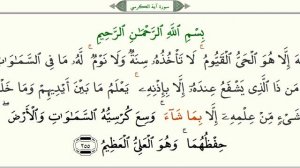 سورة آية الكرسي
بِسْمِ ٱللَّهِ ٱلرَّحْمَٰنِ ٱلرَّحِيمِ
إِلَّا هُوَ ٱلْحَىُّ ٱلْقَيُّومُ ۚ لَا تَأْخُذُهُۥ سِنَةٌ وَلَا نَوْمٌ ۚ لَّهُۥ مَا فِى ٱلسَّمَٰوَٰتِ
مَن ذَا ٱلَّذِى يَشْفَعُ عِندَهُۥٓ إِلَّا بِإِذْنِهِۦ ۚ يَعْلَمُ مَا بَيْنَ أَيْدِيهِمْ وَمَا
شَىْءٍ مِّنْ عِلْمِهِۦٓ إِلَّا بِمَا شَآءَ ۚ وَسِعَ كُرْسِيُّهُ ٱلسَّمَٰوَٰتِ وَٱلْأَرْضَ ۖ
حِفْظُهُمَا ۚ وَهُوَ ٱلْعَلِىُّ ٱلْعَظِيمُ ٢٥٥